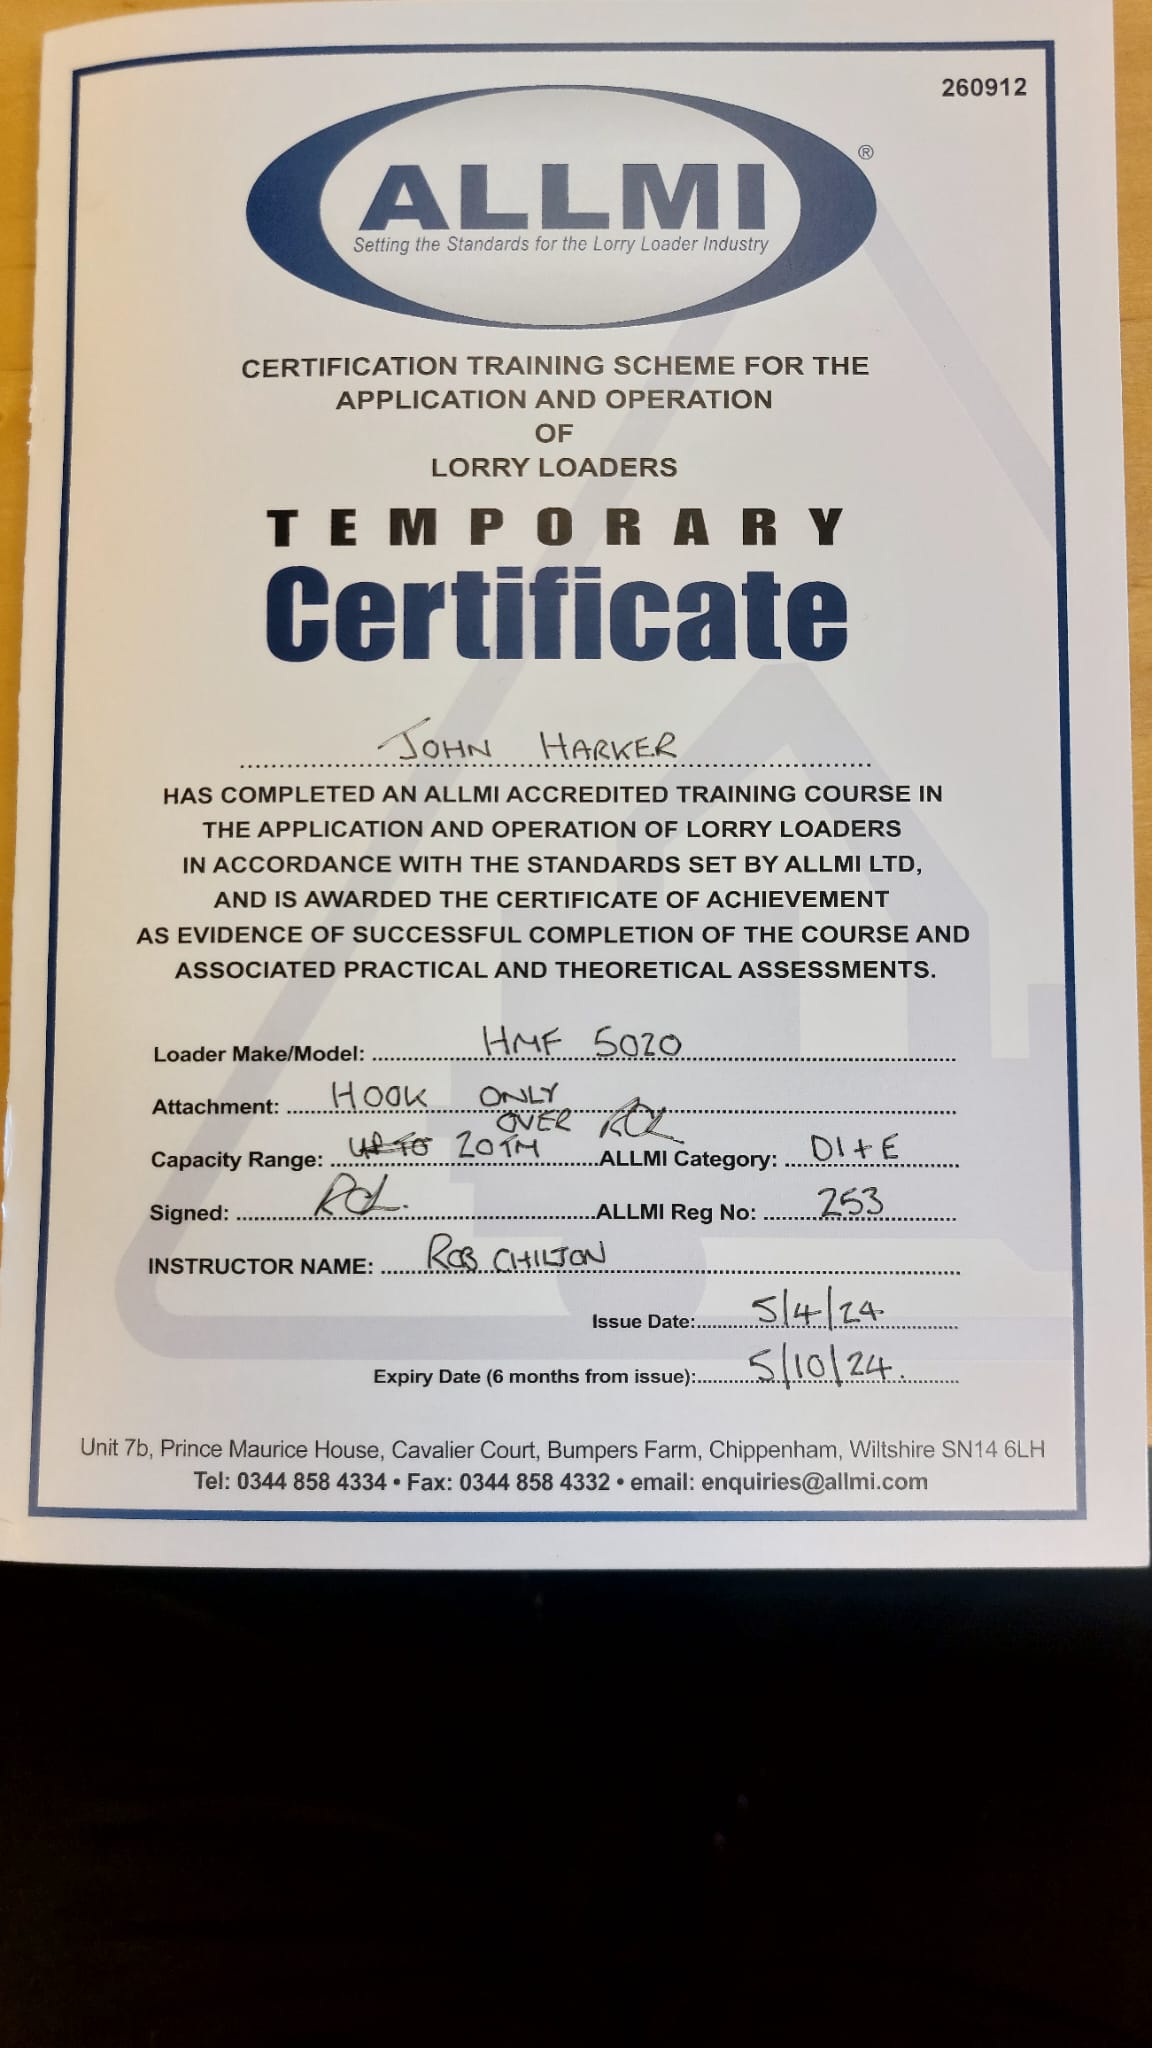 260912
ALLMI®
Setting the Standards for the Lorry Loader Industry
CERTIFICATION TRAINING SCHEME FOR THE
APPLICATION AND OPERATION
OF
LORRY LOADERS
TEMPORARY
Certificate
JOHN HARKER
HAS COMPLETED AN ALLMI ACCREDITED TRAINING COURSE IN
THE APPLICATION AND OPERATION OF LORRY LOADERS
IN ACCORDANCE WITH THE STANDARDS SET BY ALLMI LTD,
AND IS AWARDED THE CERTIFICATE OF ACHIEVEMENT
AS EVIDENCE OF SUCCESSFUL COMPLETION OF THE COURSE AND
ASSOCIATED PRACTICAL AND THEORETICAL ASSESSMENTS.
Loader Make/Model: HMF 5020
Attachment: HOOK ONLY
OVER
Capacity Range: UP TO 20TM ALLMI Category: D1+E
Signed: ALLMI Reg No: 253
INSTRUCTOR NAME: ROB CHILTON
Issue Date: 5/4/24
Expiry Date (6 months from issue): 5/10/24.
Unit 7b, Prince Maurice House, Cavalier Court, Bumpers Farm, Chippenham, Wiltshire SN14 6LH
Tel: 0344 858 4334 • Fax: 0344 858 4332 • email: enquiries@allmi.com